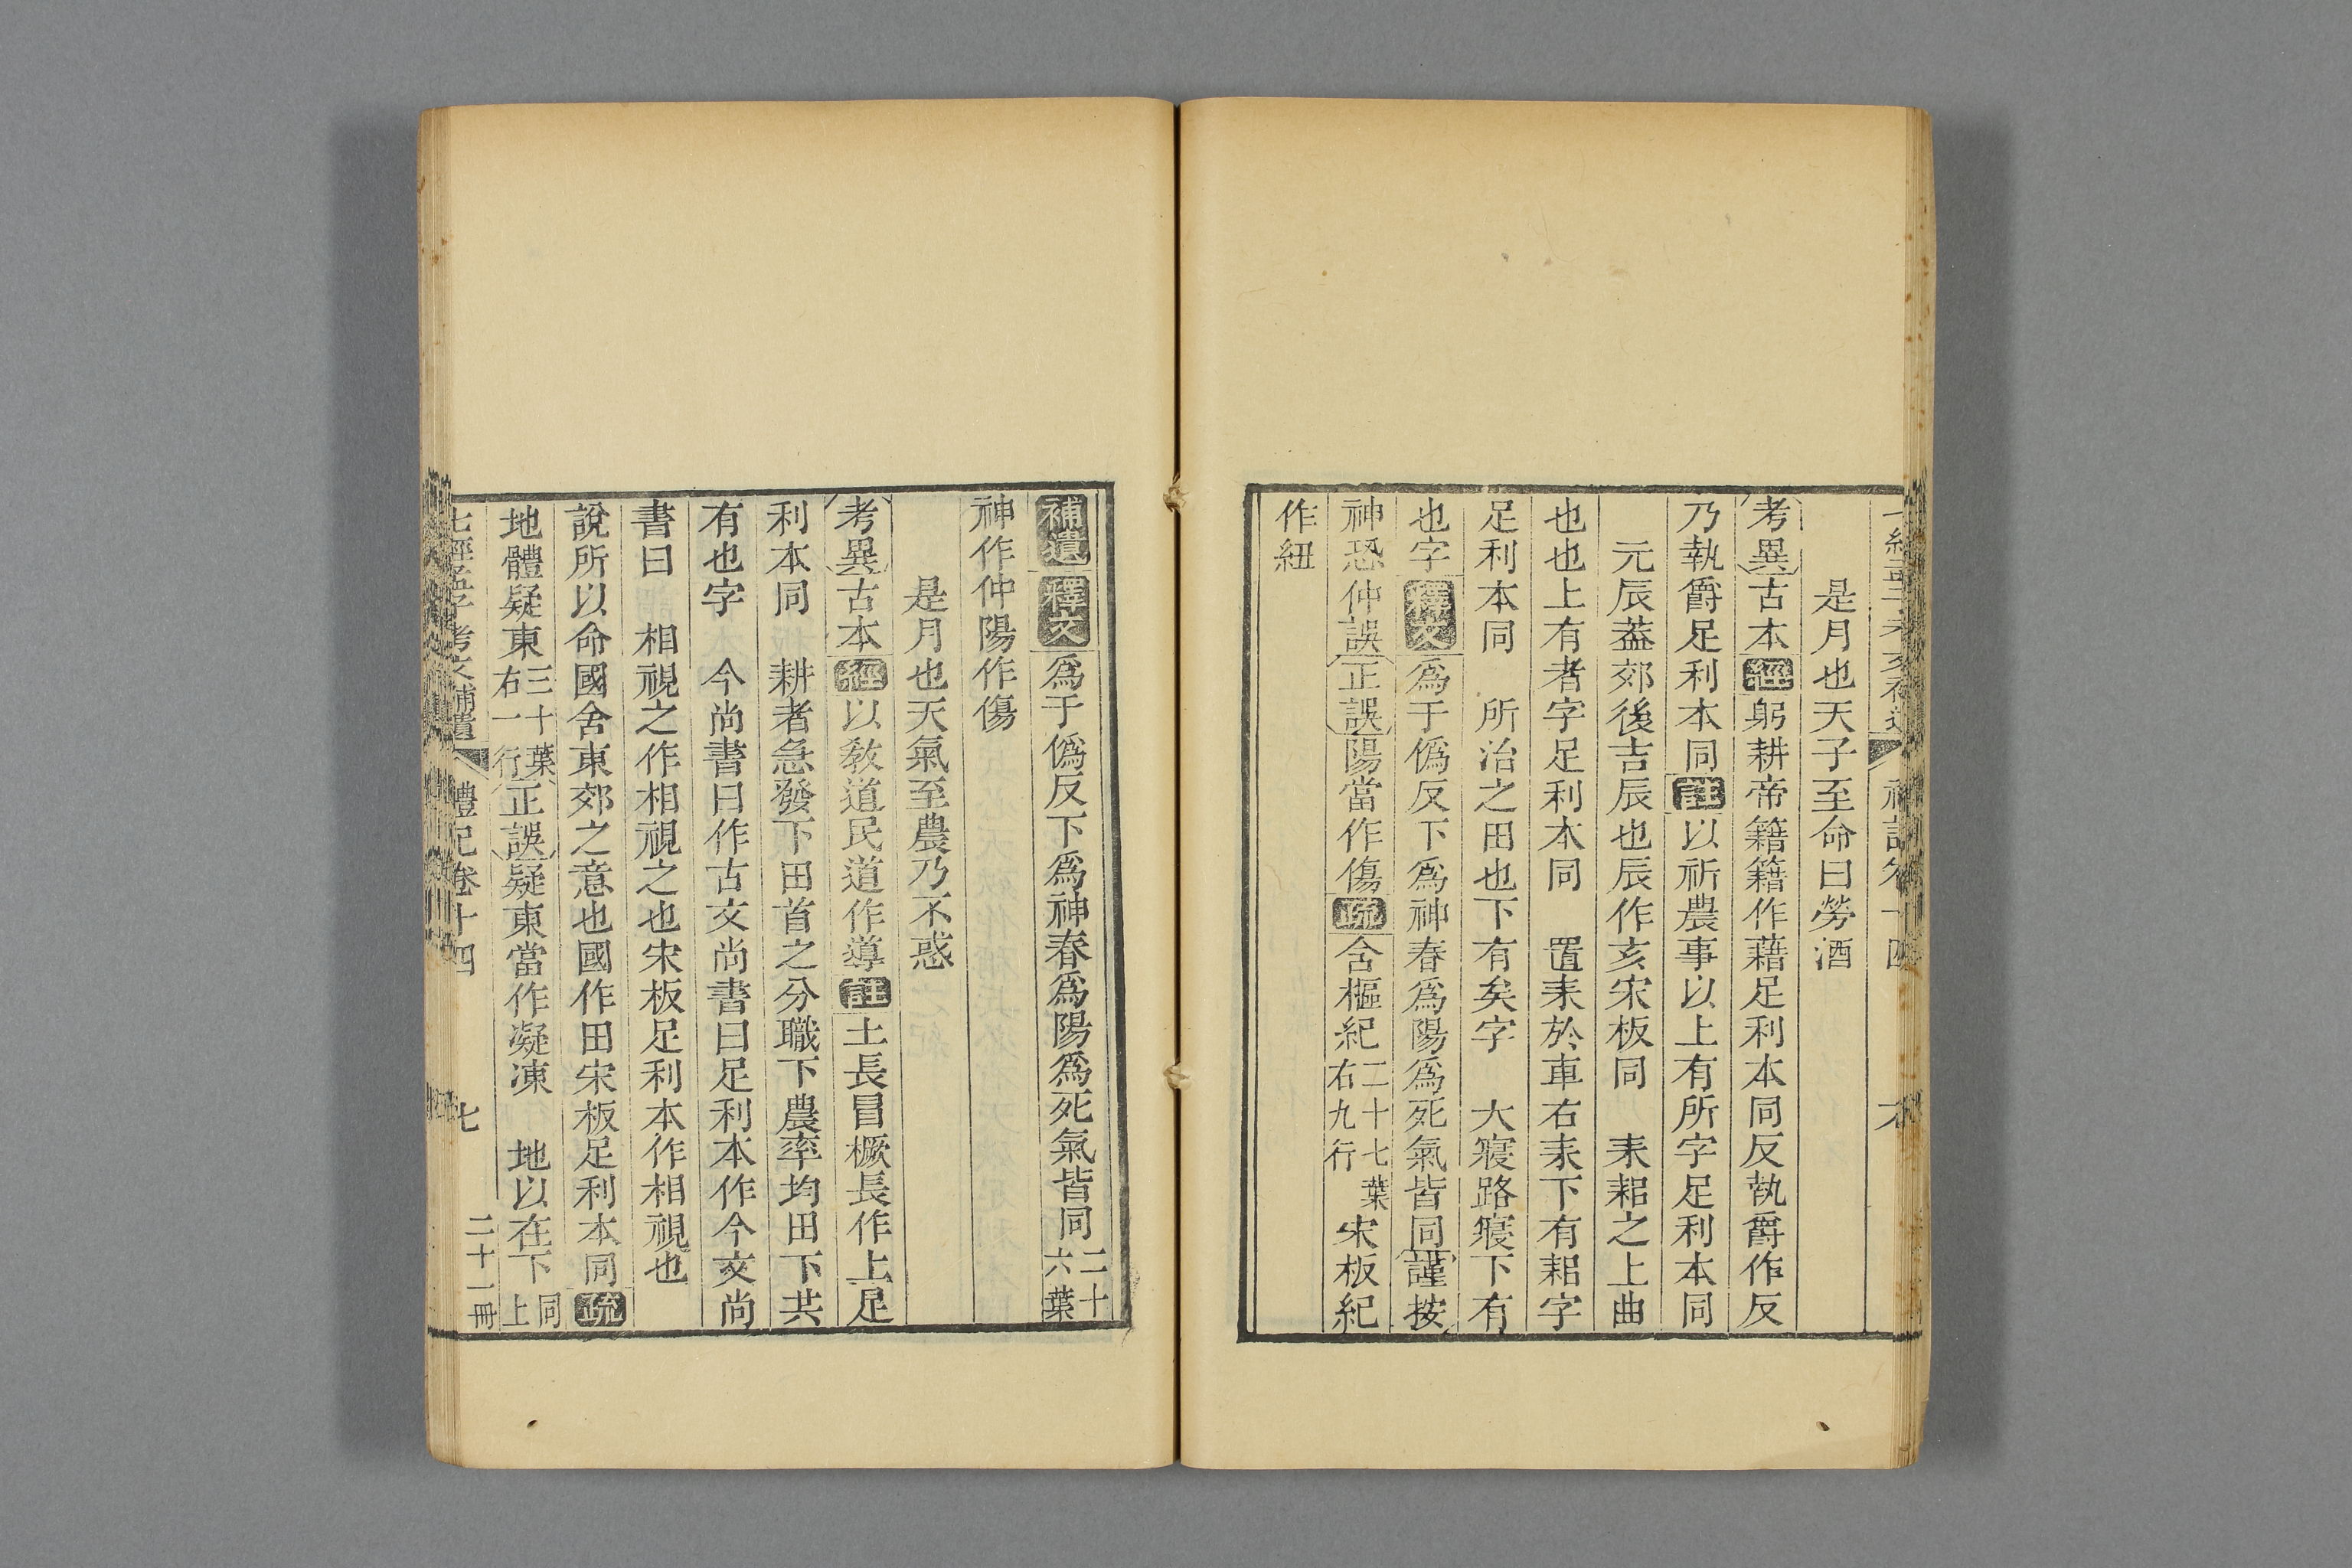 是月也天子至命曰勞酒
考異古本經躬耕帝籍籍作藉足利本同反執爵作反
乃執爵足利本同註以祈農事以上有所字足利本同
元辰葢郊後吉辰也辰作亥宋板同　耒耜之上曲
也也上有者字足利本同　置耒於車右耒下有耜字
足利本同　所治之田也下有矣字　大寢路寢下有
也字釋文爲于僞反下爲神春爲陽爲死氣皆同謹按
神恐仲誤正誤陽當作傷疏含樞紀二十七葉右九行宋板紀
作紐
補遺釋文爲于僞反下爲神春爲陽爲死氣皆同二十六葉
神作仲陽作傷
是月也天氣至農乃不惑
考異古本經以敎道民道作導註土長冒橛長作上足
利本同　耕者急發下田首之分職下農率均田下共
有也字　今尚書曰作古文尚書曰足利本作今文尚
書曰　相視之作相視之也宋板足利本作相視也
說所以命國舍東郊之意也國作田宋板足利本同疏
地體疑東三十葉右一行正誤疑東當作凝凍　地以在下同上
七經孟子考文補遺　禮記卷十四　七　二十一冊